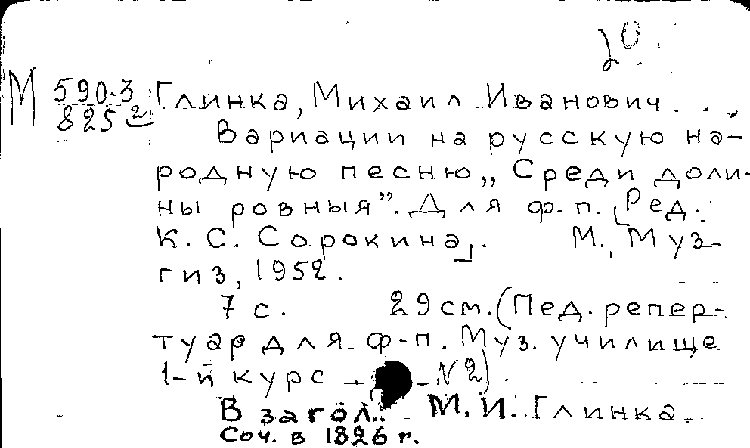 20
М 590-3 Глинка, Михаил Иванович.
825 2
Вариации на русскую на-
родную песню „Среди доли-
ны ровныя”. Для ф.-п. [Ред.
К. С. Сорокина]. М., Муз-
гиз, 1952.
7 с. 29 см. (Пед. репер-
туар для ф-п. Муз. училище
1-й курс № 2)
В загол.: М. И. Глинка.
Соч. в 1826 г.